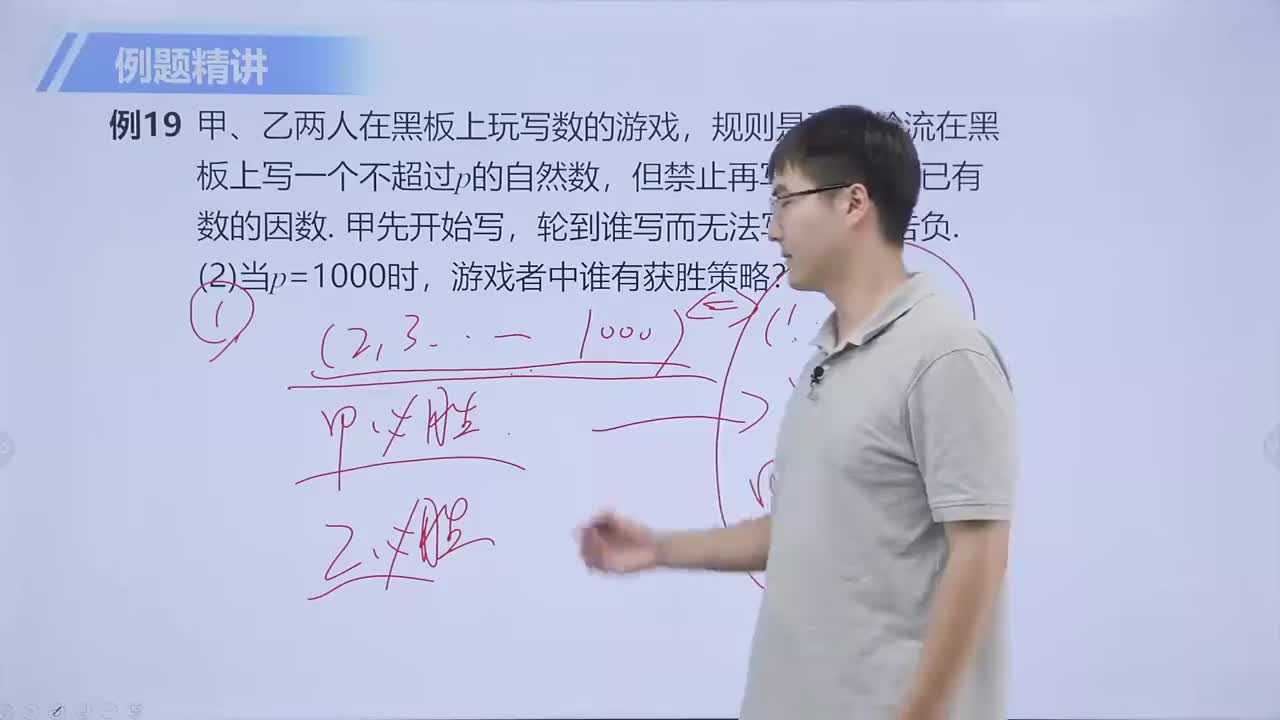 例题精讲
例19 甲、乙两人在黑板上玩写数的游戏，规则是 流在黑
板上写一个不超过p的自然数，但禁止再写 已有
数的因数. 甲先开始写，轮到谁写而无法写 告负.
(2)当p=1000时，游戏者中谁有获胜策略?
①
(2,3...— 1000)
甲必胜
乙必胜